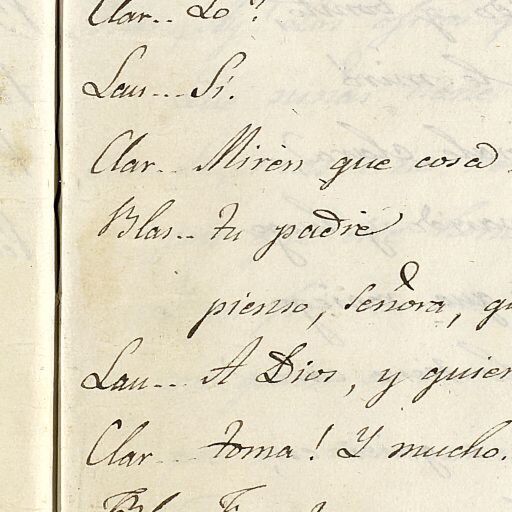 Clar.. Lo?
Lau... Sí.
Clar.. Miren que cosa
Blas.. tu padre
pienso, Señora,
Lau... A Dios, y quier
Clar... toma! Y mucho.